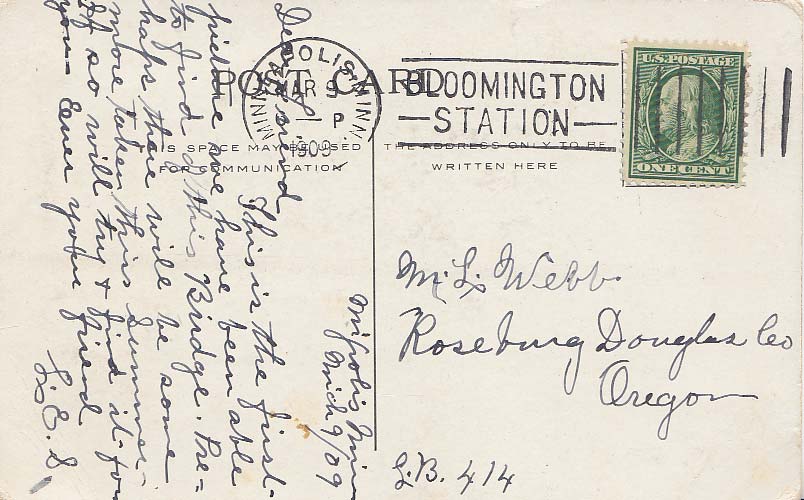 POST CARD
THIS SPACE MAY BE USED
FOR COMMUNICATION
THE ADDRESS ONLY TO BE
WRITTEN HERE
MINN.
MAR 9
P
1909
BLOOMINGTON
STATION
U.S. POSTAGE
ONE CENT
Mplois Minn
Mich 9/09
Dear friend
This is the first
picture we have been able
to find of this Bridge. Per=
haps there will be some
more taken this Summer.
If so will try & find it for
you - Ever your friend
L. E. S.
Mr. L. Webb.
Roseburg Douglas Co
Oregon
L.B. 414